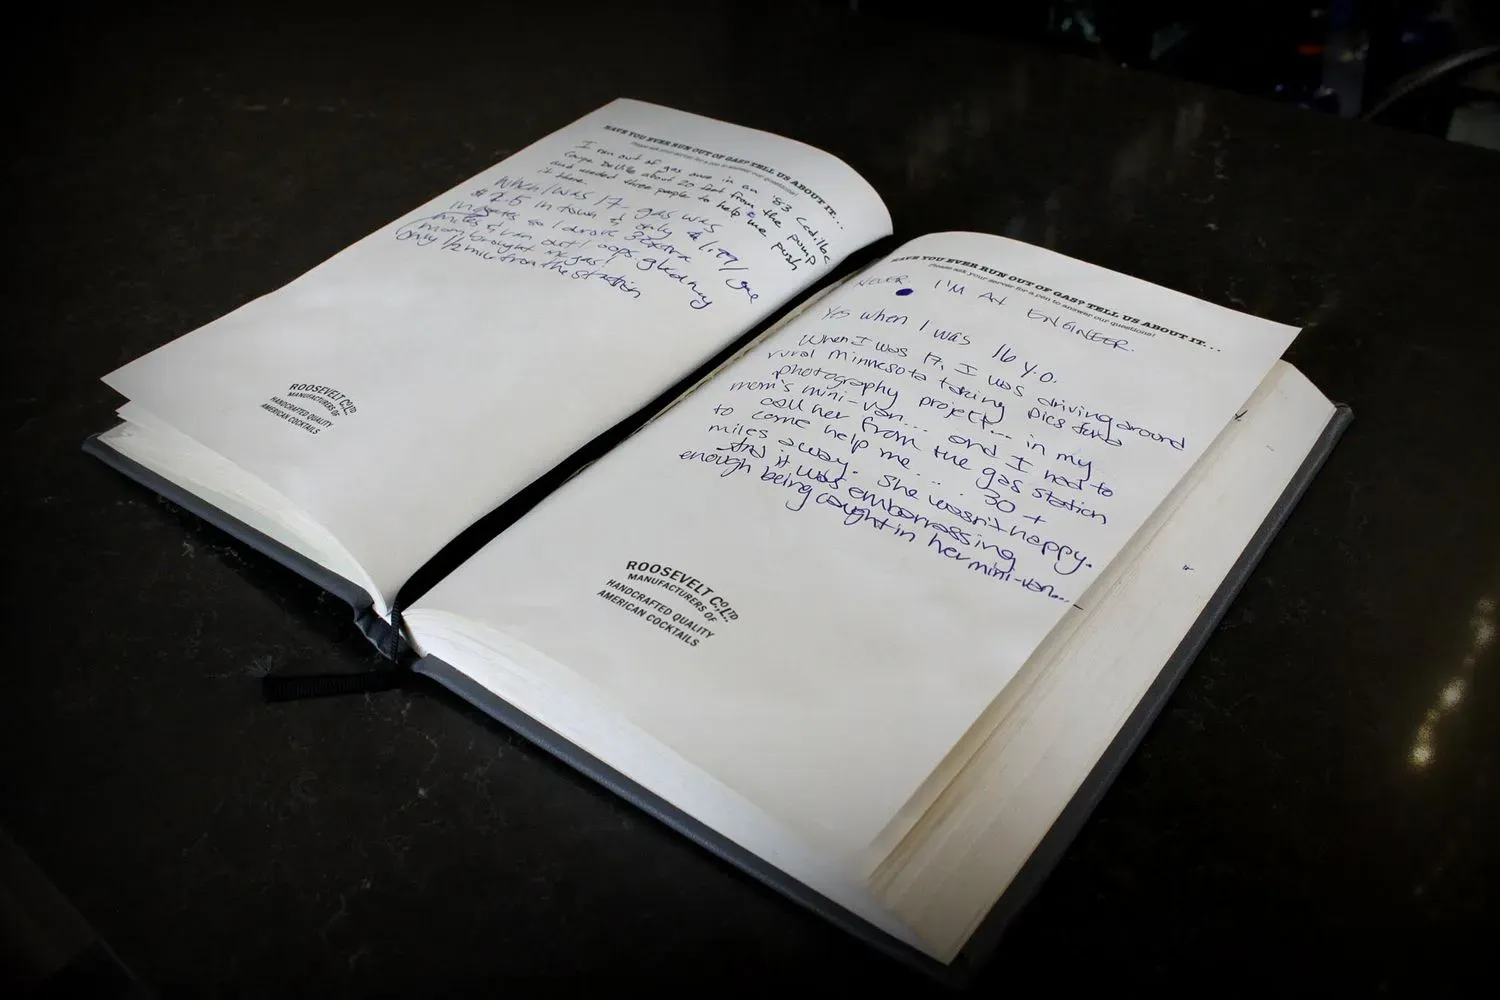 HAVE YOU EVER RUN OUT OF GAS? TELL US ABOUT IT...
Please ask your server for a pen to answer our questions!
I run out of gas once in an '83 Cadillac
Coupe DeVille about 20 feet from the pump
and needed three people to help me push
it there.
When I was 17 gas was
$2.5 in town & only $1.99/
so I drove 3 extra
miles & ran out! oops glad my
mom brought me gas!
only 1/2 mile from the station
ROOSEVELT CO. LTD
MANUFACTURERS OF
HANDCRAFTED QUALITY
AMERICAN COCKTAILS
HAVE YOU EVER RUN OUT OF GAS? TELL US ABOUT IT...
Please ask your server for a pen to answer our questions!
NEVER I'M AN ENGINEER.
Yes when I was 16 Y.O.
When I was 17, I was driving around
rural Minnesota taking pics for a
photography project... in my
mom's mini-van... and I had to
call her from the gas station
to come help me.... 30 +
miles away. She wasn't happy.
And it was embarrassing
enough being caught in her mini-van...
ROOSEVELT CO., LTD.
MANUFACTURERS OF
HANDCRAFTED QUALITY
AMERICAN COCKTAILS